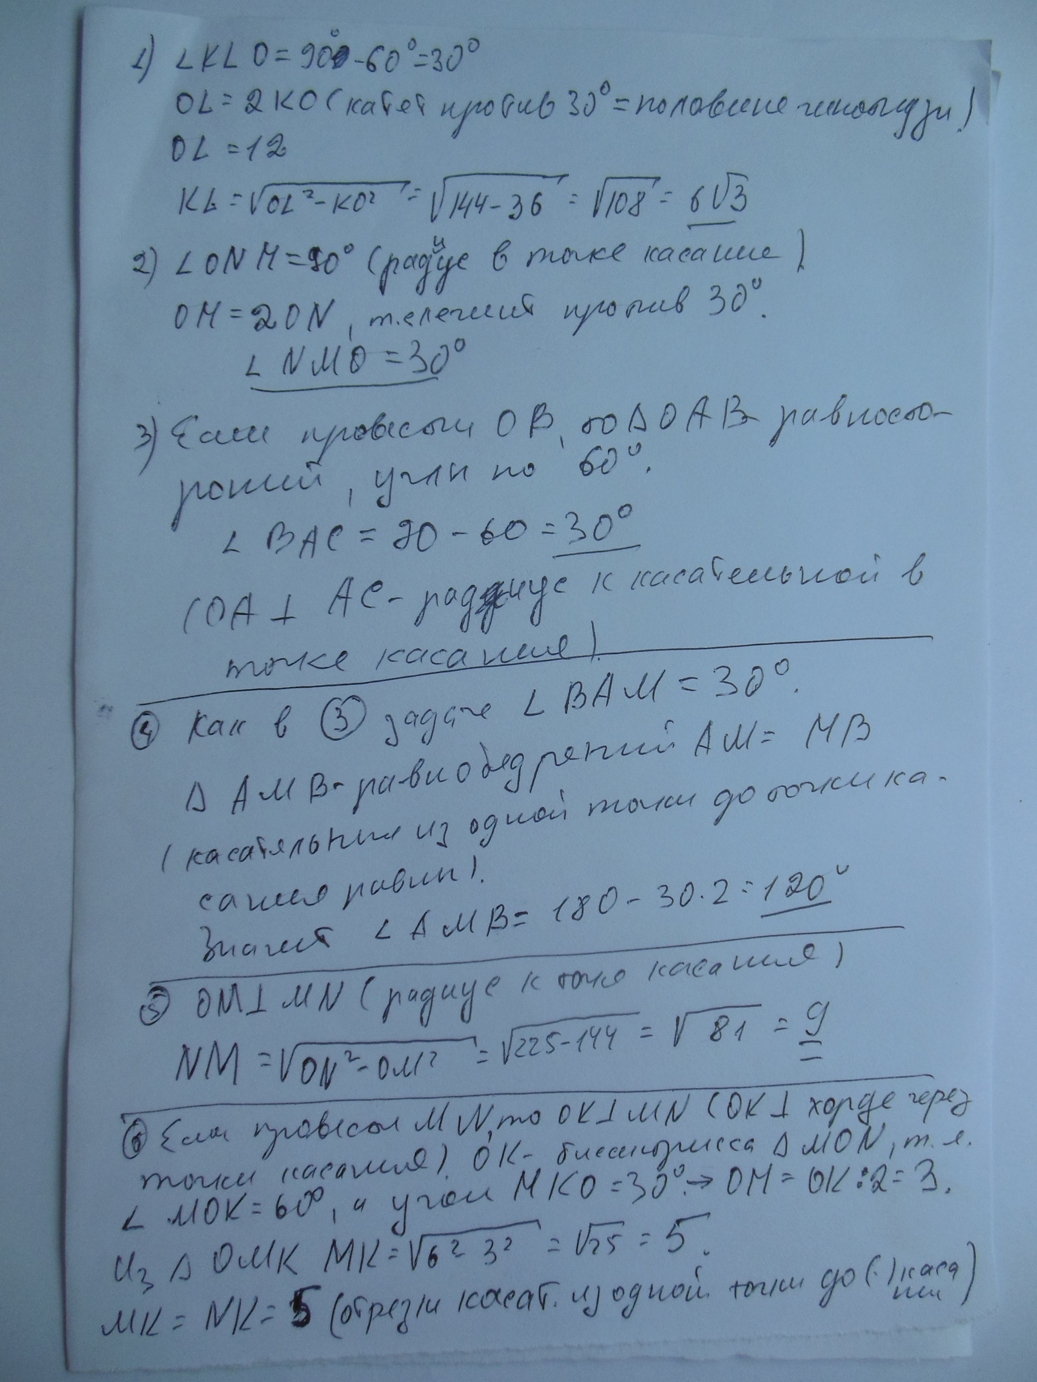 1) ∠KLO = 90° - 60° = 30°
OL = 2KO (катет против 30° = половине гипотенузы)
OL = 12
KL = √OL² - KO² = √144 - 36 = √108 = 6√3
2) ∠ONM = 90° (радиус в точке касания)
OM = 2ON, т.е лежит против 30°.
∠NMO = 30°
3) Если провести OB, то ΔOAB - равносто-
роний, углы по 60°.
∠BAC = 90 - 60 = 30°
(OA ⊥ AC - радиус к касательной в
точке касания)
④ Как в ③ задаче ∠BAM = 30°.
Δ AMB - равнобедрений AM = MB
(касательния из одной точки до точки ка-
сания равны).
Значит ∠AMB = 180 - 30·2 = 120°
⑤ OM ⊥ MN (радиус к точке касания)
NM = √ON² - OM² = √225 - 144 = √81 = 9
⑥ Если провести MN, то OK ⊥ MN (OK ⊥ хорде через
точки касания). OK - биссектриса Δ MON, т.е.
∠ MOK = 60°, и угол MKO = 30° → OM = OK : 2 = 3.
Из Δ OMK MK = √6² 3² = √25 = 5.
MK = NK = 5 (отрезки касат. из одной точки до (·) каса
ния)